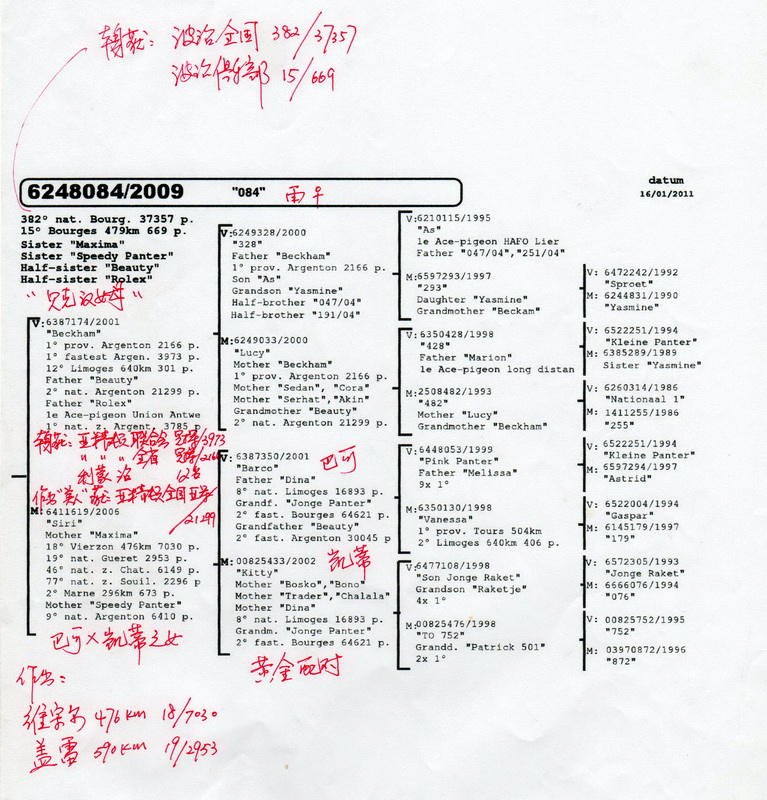 翱荻: 波治全国 382/37357
波治俱乐部 15/669
6248084/2009 "084" 雨 ♀
datum
16/01/2011
382° nat. Bourg. 37357 p.
15° Bourges 479km 669 p.
Sister "Maxima"
Sister "Speedy Panter"
Half-sister "Beauty"
Half-sister "Rolex"
V:6387174/2001
"Beckham"
1° prov. Argenton 2166 p.
1° fastest Argen. 3973 p.
12° Limoges 640km 301 p.
Father "Beauty"
2° nat. Argenton 21299 p.
Father "Rolex"
1e Ace-pigeon Union Antwe
1° nat. z. Argent, 3785 p
亚精顿联合会 冠军/3973
" " " 全省 冠军/2166
利蒙治 12名
作出"美人"获: 亚精顿全国亚军/21299
M:6411619/2006
"Siri"
Mother "Maxima"
18° Vierzon 476km 7030 p.
19° nat. Gueret 2953 p.
46° nat. z. Chat. 6149 p.
77° nat. z. Souil. 2296 p
2° Marne 296km 673 p.
Mother "Speedy Panter"
9° nat. Argenton 6410 p.
巴可 X 凯蒂之女
作出:
维宗尔 476km 18/7030
盖雷 590km 19/2953
V:6249328/2000
"328"
Father "Beckham"
1° prov. Argenton 2166 p.
Son "As"
Grandson "Yasmine"
Half-brother "047/04"
Half-brother "191/04"
M:6249033/2000
"Lucy"
Mother "Beckham"
1° prov. Argenton 2166 p.
Mother "Sedan", "Cora"
Mother "Serhat","Akin"
Grandmother "Beauty"
2° nat. Argenton 21299 p.
V:6387350/2001 巴可
"Barco"
Father "Dina"
8° nat. Limoges 16893 p.
Grandf. "Jonge Panter"
2° fast. Bourges 64621 p.
Grandfather "Beauty"
2° fast. Argenton 30045 p
M:00825433/2002 凯蒂
"Kitty"
Mother "Bosko","Bono"
Mother "Trader","Chalala"
Mother "Dina"
8° nat. Limoges 16893 p.
Grandm. "Jonge Panter"
2° fast. Bourges 64621 p.
黄金配对
V:6210115/1995
"As"
1e Ace-pigeon HAFO Lier
Father "047/04","251/04"
M:6597293/1997
"293"
Daughter "Yasmine"
Grandmother "Beckam"
V: 6350428/1998
"428"
Father "Marion"
1e Ace-pigeon long distan
M:2508482/1993
"482"
Mother "Lucy"
Grandmother "Beckham"
V: 6448053/1999
"Pink Panter"
Father "Melissa"
9x 1°
M:6350130/1998
"Vanessa"
1° prov. Tours 504km
2° Limoges 640km 406 p.
V:6477108/1998
"Son Jonge Raket"
Grandson "Raketje"
4x 1°
M:00825476/1998
"TO 752"
Grandd. "Patrick 501"
2x 1°
V: 6472242/1992
"Sproet"
M: 6244831/1990
"Yasmine"
V: 6522251/1994
"Kleine Panter"
M: 6385289/1989
Sister "Yasmine"
V: 6260314/1986
"Nationaal 1"
M: 1411255/1986
"255"
V: 6522251/1994
"Kleine Panter"
M: 6597294/1997
"Astrid"
V: 6522004/1994
"Gaspar"
M: 6145179/1997
"179"
V: 6572305/1993
"Jonge Raket"
M: 6666076/1994
"076"
V: 00825752/1995
"752"
M: 03970872/1996
"872"